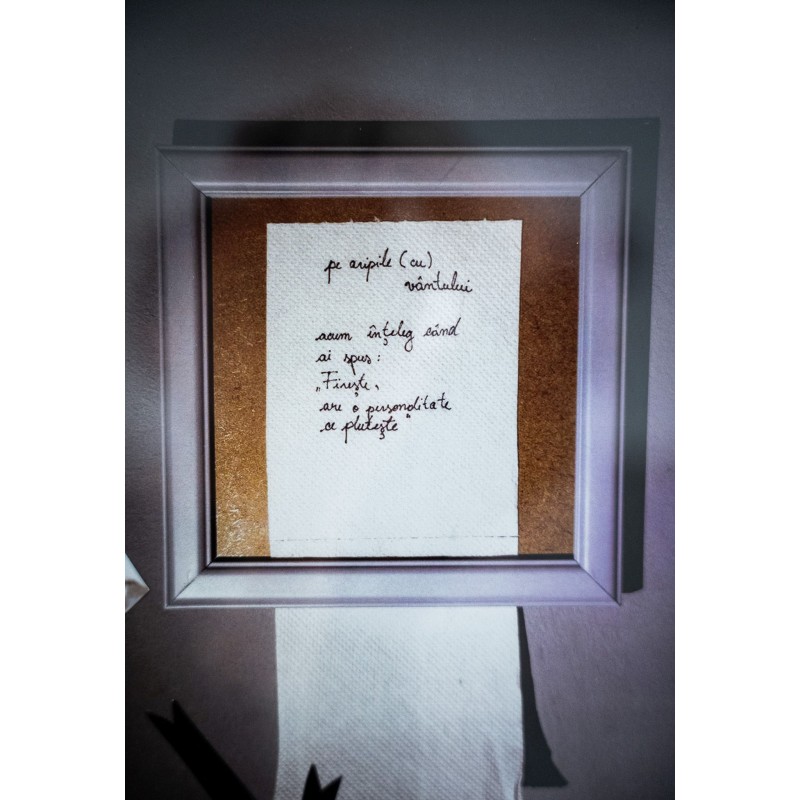 pe aripile (cu)
vântului
acum înțeleg când
ai spus:
„Firește,
are o personalitate
ce plutește”